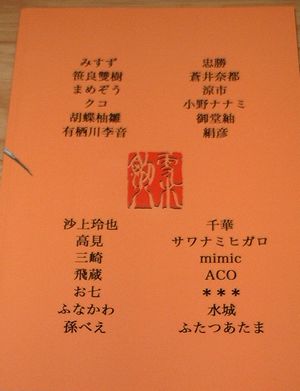 みすず 忠勝
笹良雙樹 蒼井奈都
まめぞう 涼市
クコ 小野ナナミ
胡蝶柚雛 御堂紬
有栖川李音 絹彦
沙上玲也 千華
高見 サワナミヒガロ
三崎 mimic
飛蔵 ACO
お七 ＊＊＊
ふなかわ 水城
孫べえ ふたつあたま